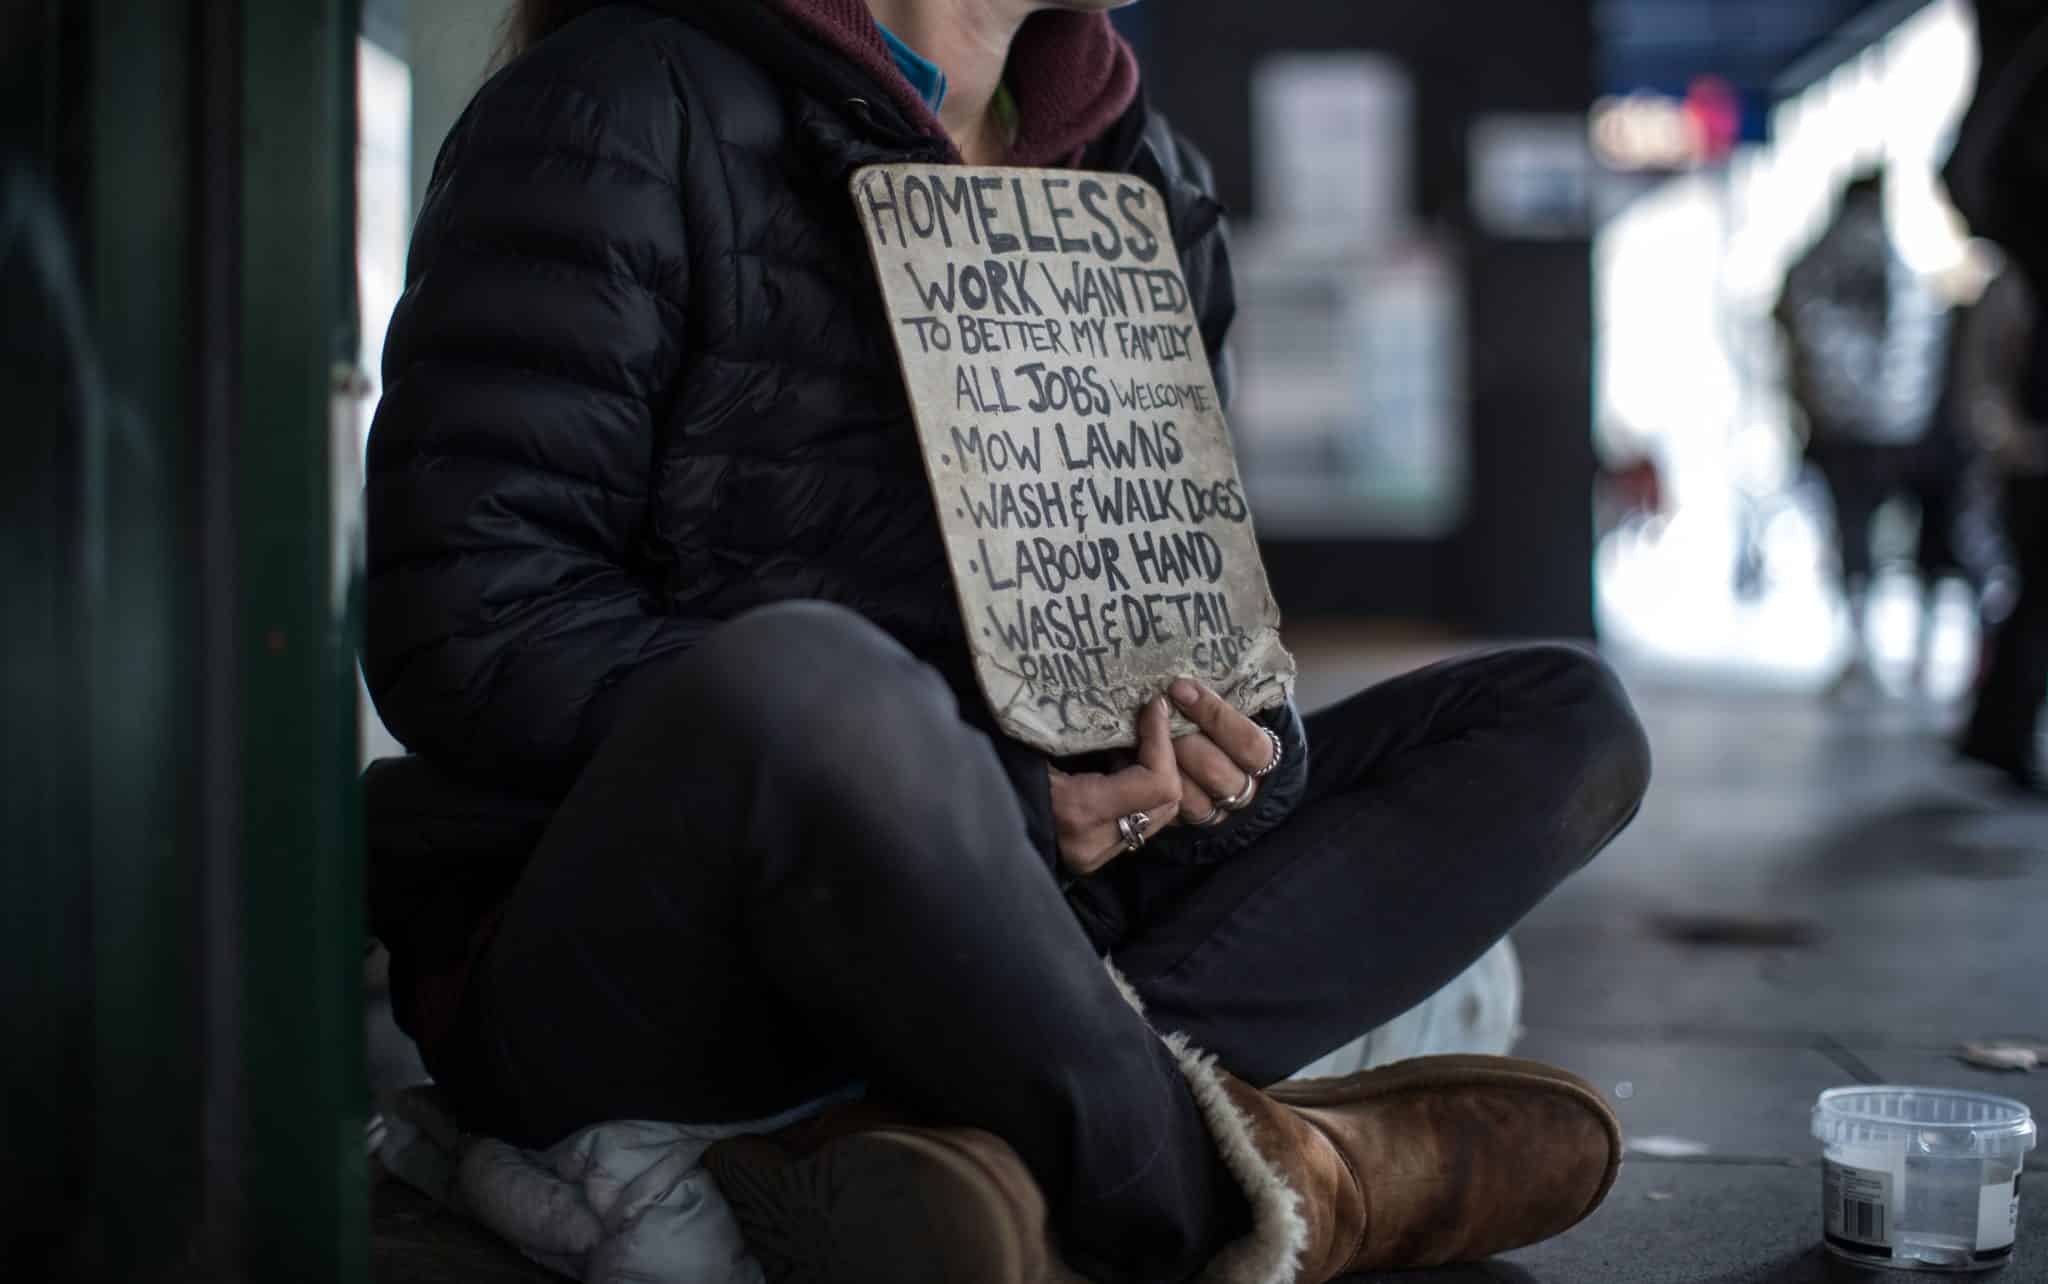 HOMELESS
WORK WANTED
TO BETTER MY FAMILY
ALL JOBS WELCOME
• MOW LAWNS
• WASH & WALK DOGS
• LABOUR HAND
• WASH & DETAIL
PAINT CARS